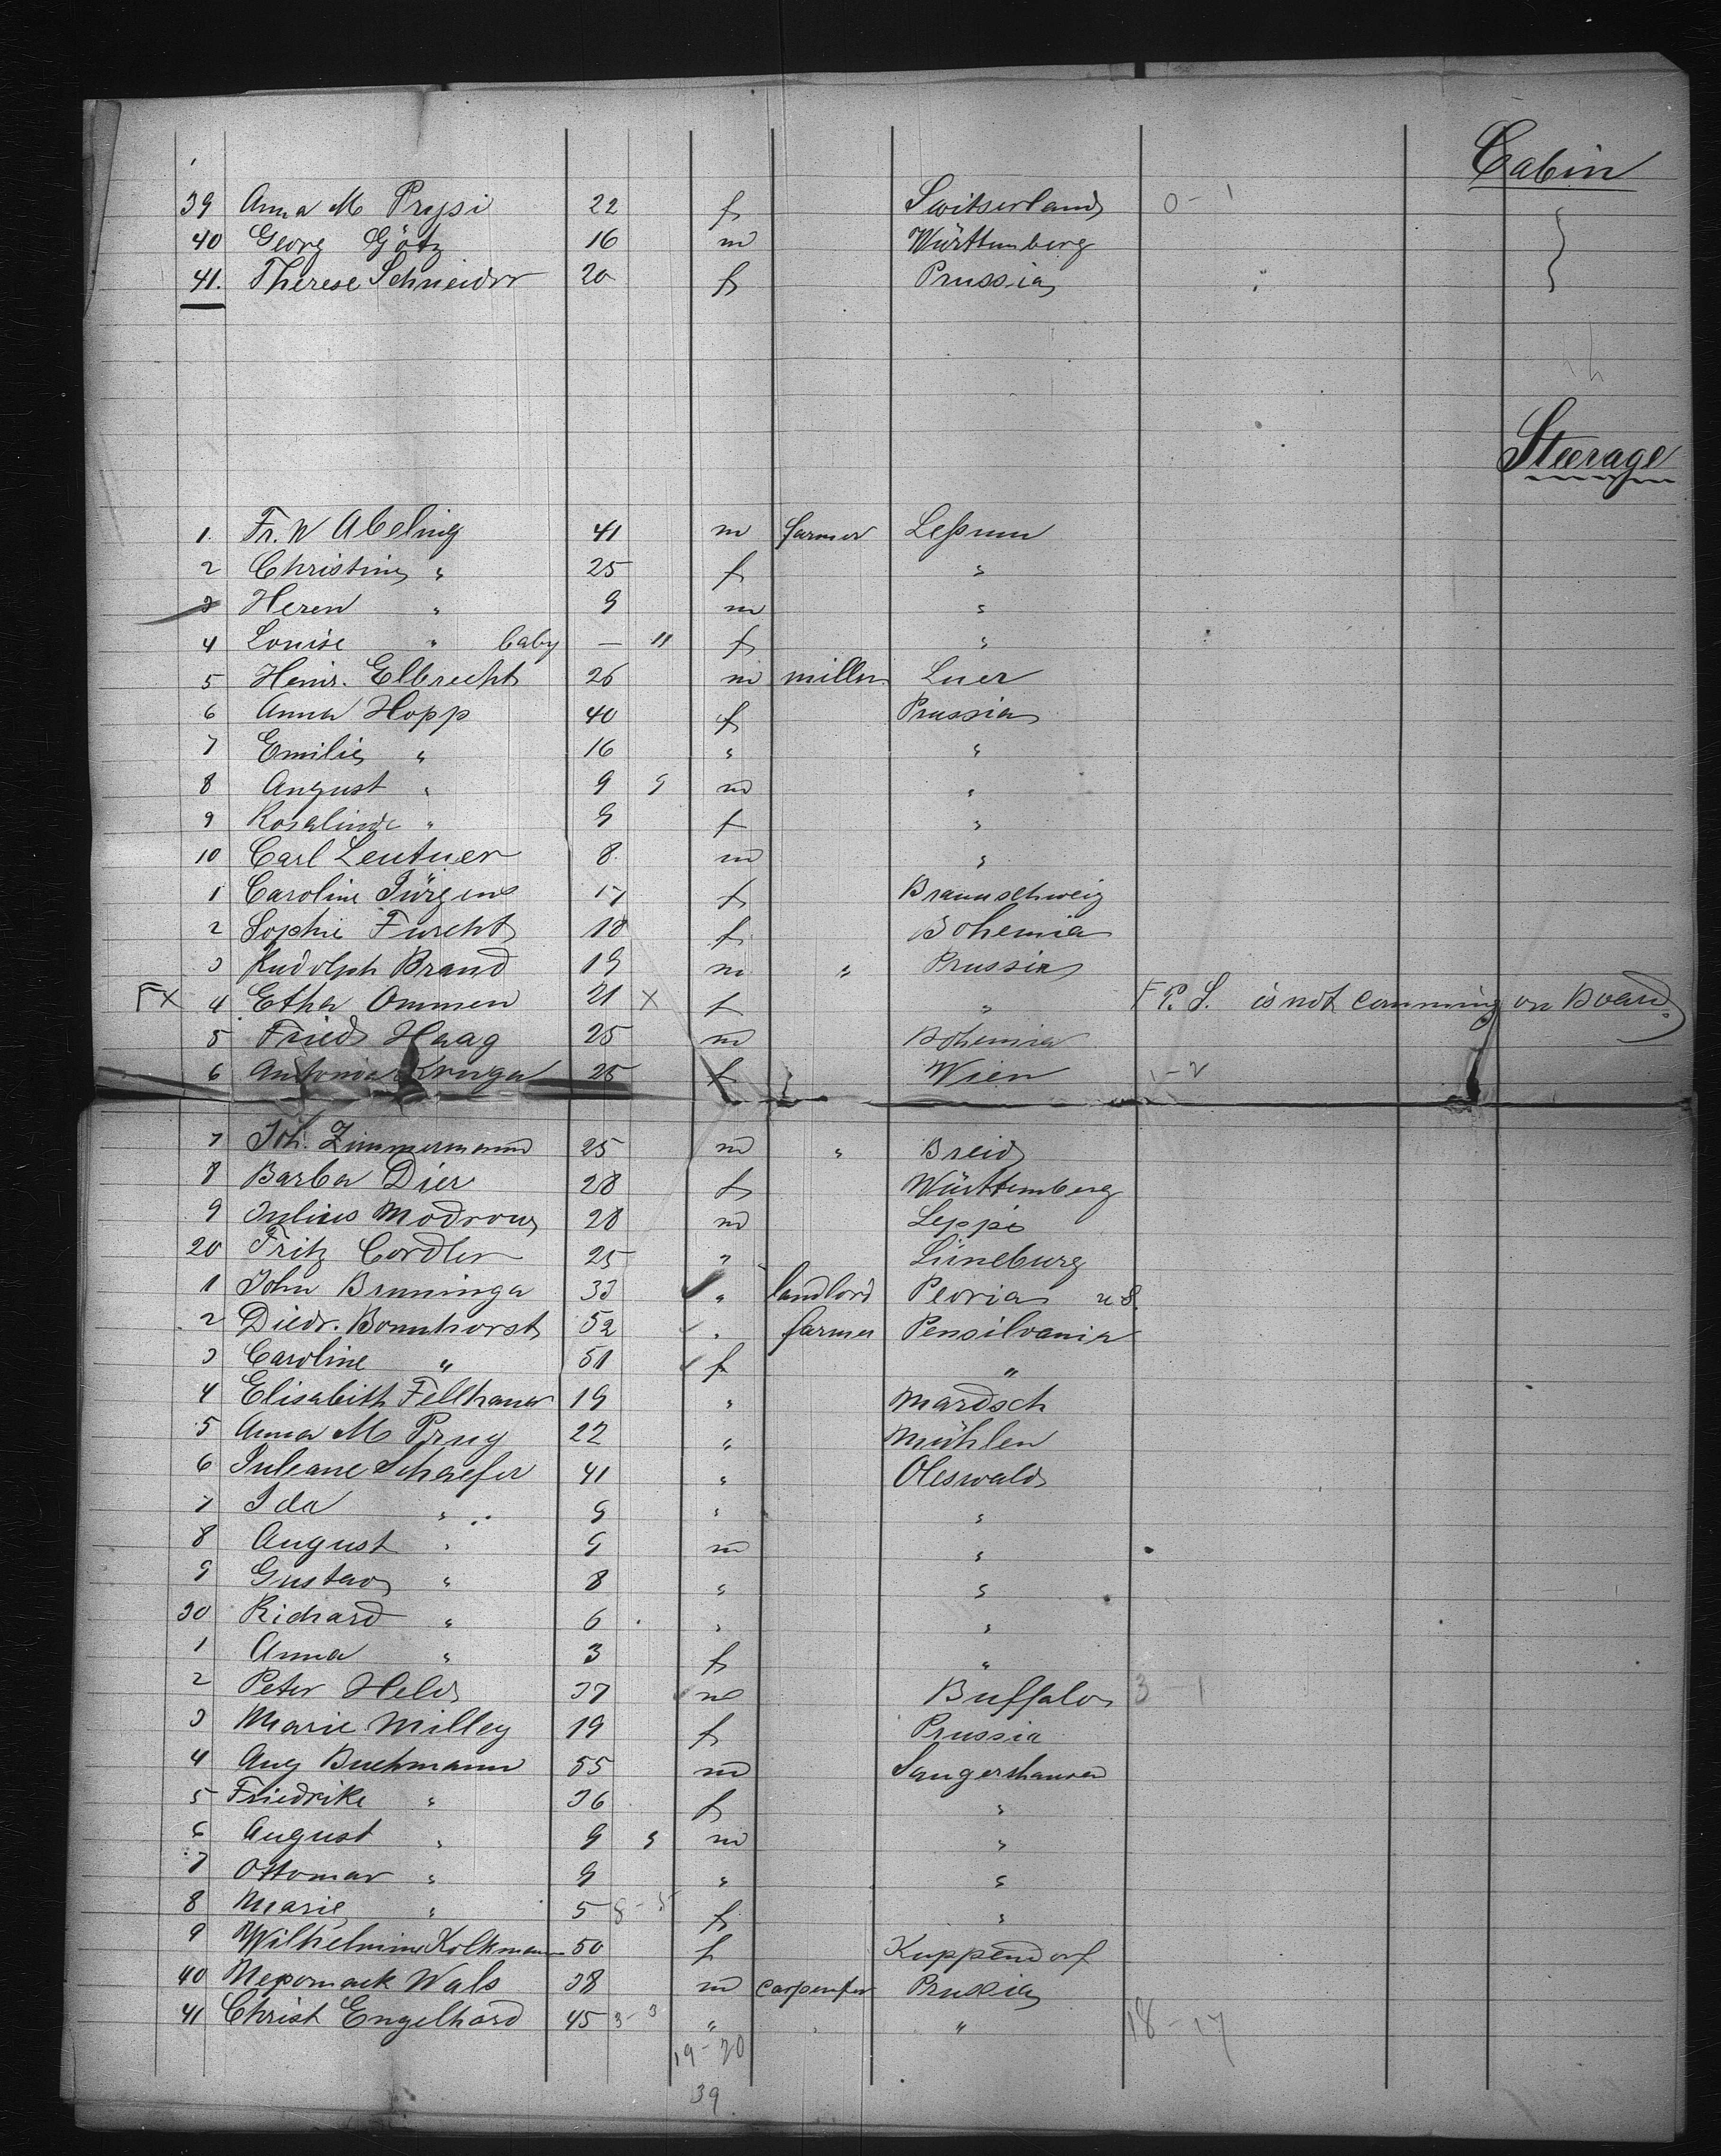 Cabin
39 Anna M Prysi 22 f Switserland 0 - 1
40 Georg Götz 16 m Württemberg
41. Therese Schneider 20 f Prussia
Steerage
1. Fr. W Abeling 41 m farmer Leßum
2 Christine " 25 f "
3 Heren " 9 m "
4 Louise " baby — 11 f "
5 Heinr. Elbrecht 26 m miller Luer
6 Anna Hopp 40 f Prussia
7 Emilie " 16 " "
8 August " 9 9 m "
9 Rosalinde " 9 f "
10 Carl Leutner 8 m "
1 Caroline Jürgens 17 f Braunschweig
2 Sophie Furcht 18 f Bohemia
3 Rudolph Brand 19 m " Prussia
FX 4 Etha Ommen 21 X f " F P. S. is not comming on Board.
5 Fried Haag 25 m Bohemia
6 Antonia Kruger 25 f Wien 1 - 2
7 Joh. Zimmermann 25 m " Breid
8 Barba Dier 28 f Württemberg
9 Julius Modrow 28 m Leppe
20 Fritz Cordler 25 " Lüneburg
1 John Bruninga 33 " landlord Peoria u S.
2 Diedr. Bonnhorst 52 " farmer Pensilvania
3 Caroline " 51 f "
4 Elisabeth Fellhauer 19 " Mardsch
5 Anna M Prug 22 " Mühlen
6 Juleane Schaefer 41 " Oleswald
7 Ida " 9 " "
8 August " 9 m "
9 Gustav " 8 " "
30 Richard " 6 " "
1 Anna " 3 f "
2 Peter Held 37 m Buffalo 3 - 1
3 Marie Milley 19 f Prussia
4 Aug Buchmann 55 m Sangershausen
5 Friedrike " 36 f "
6 August " 9 9 m "
7 Ottomar " 9 " "
8 Marie " 5 8 - 5 f "
9 Wilhelmine Kolkmann 50 f Kuppendorf
40 Nepomack Wals 38 m carpenter Prussia
41 Christ Engelhard 45 3 - 3 " " " 18 - 17
19 - 20
39